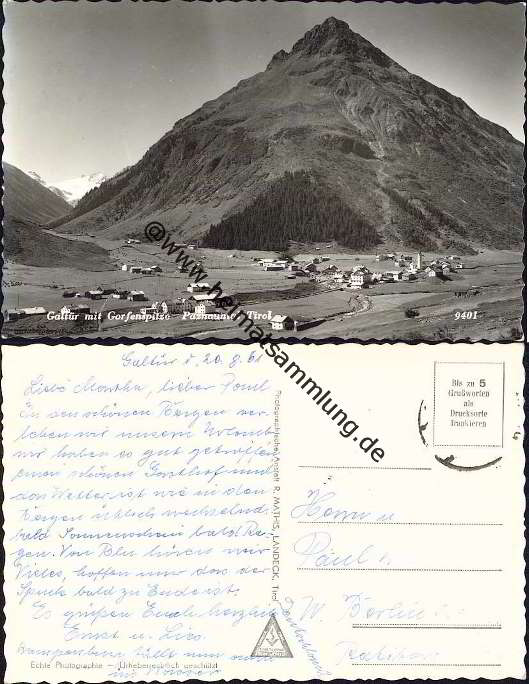 Galtür mit Gorfenspitze Paznauntal Tirol 9401
@www.heimatsammlung.de
Galtür d, 20.8.61
Liebe Martha, lieber Paul
In den schönen Bergen ver-
leben wir unsern Urlaub
wir haben es gut getroffen
einen schönen Gasthof und
das Wetter ist wie in den
Bergen üblich wechselnd
bald Sonnenschein bald Re-
gen. Von hören wir
Vieles, hoffen nur das der
Spuk bald zu Ende ist.
Es grüßen Euch herzlich
Ernst u.
Echte Photographie — Urheberrechtlich geschützt
Photographische Anstalt R. MATHIS, LANDECK, Tirol
Bis zu 5
Grußworten
als
Drucksorte
frankieren
Herrn u
Paul
W. Berlin